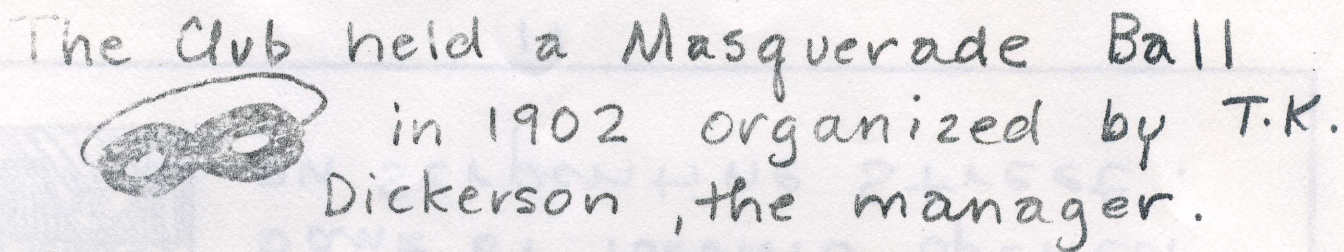 The Club held a Masquerade Ball
in 1902 organized by T.K.
Dickerson, the manager.